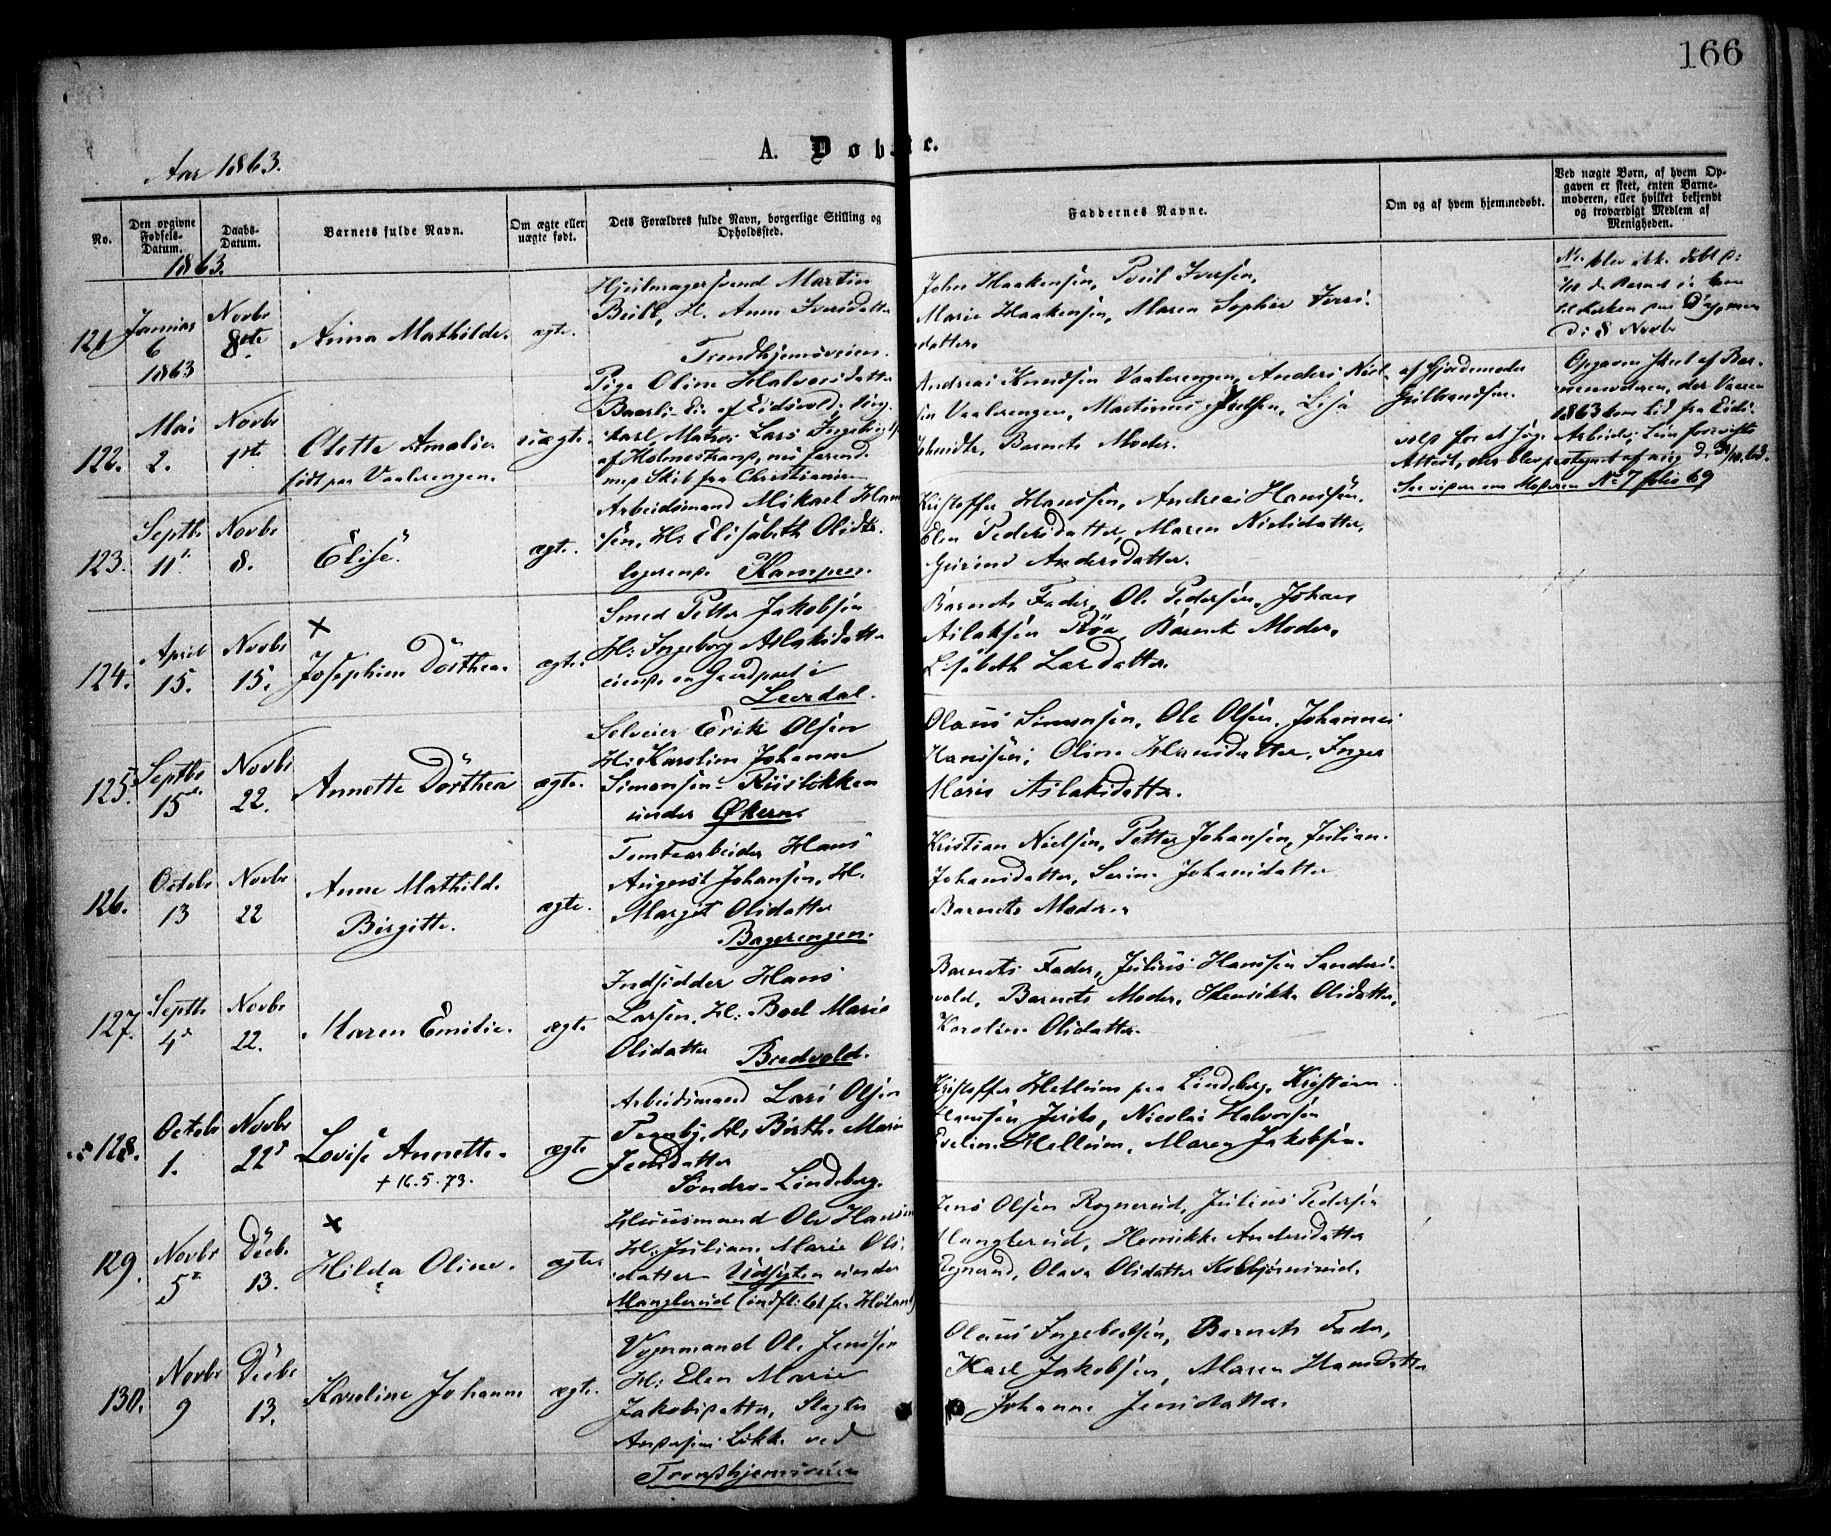 166
A. Døbte.
Aar 1863.
No.
Den opgivne
Fødsels-
Datum.
Daabs-
Datum.
Barnets fulde Navn.
Om ægte eller
uægte født.
Dets Forældres fulde Navn, borgerlige Stilling og
Opholdssted.
Faddernes Navne.
Om og af hvem hjemmedøbt.
Ved uægte Børn, af hvem Op-
gaven er skeet, enten Barne-
moderen, eller hvilket bekjendt
og troværdigt Medlem af
Menigheden.
1863.
121
Januar
6
1863
Novbr
8de
Anna Mathilde.
ægte.
Hjulmagersvend Martin
H. Anne Iversdatter
Trondhjemsveien.
John Haakensen, Poul Iversen,
Marie Haakensen, Maren Sophie Ivers-
datter.
d: 8 Novbr
122.
Mai
2.
Novbr
1ste
Olette Amalie.
født paa Vaalerengen.
uægte.
Pige Oline Halvorsdatter
Karl, Matros Lars
af Holmestrand,
Skib fra Christiania
Andreas Knudsen Vaalerengen, Anders Niel-
sen Vaalerengen, Martinus
Schmidt, Barnets Moder.
af Gjordemoder
Gulbrandsen.
Opgaven skeet af Bar-
nemoderen, der Vaaren
1863 kom hid fra Eids-
vold for at søge Arbeide;
No 7 folio 69
123.
Septbr
11.
Novbr
8.
Elise
ægte.
Arbeidsmand Mikael Han-
sen, H: Elisabeth Olsdtr.
Kampen.
Kristoffer Hanssen, Andreas Hanssen.
Elen Pedersdatter, Maren Nielsdatter,
Gurine Andersdatter.
124.
April
15.
Novbr
15.
×
Josephine Dorthea.
ægte.
Smed Petter Jakobsen
H: Ingeborg Aslaksdatter
eiende en Gaardpart i
Leerdal.
Barnets Fader, Ole Pedersen, Johan
Aslaksen Röa, Barnets Moder,
Lisabeth Larsdatter.
125.
Septbr
15de
Novbr
22.
Annette Dorthea
ægte.
Selveier Erik Olsen
H: Karoline Johanne
Simonsen- Riisløkken
under Økern.
Olaus Simonsen, Ole Olsen, Johannes
Hanssen, Oline Hansdatter, Inger
Marie Aslaksdatter.
126.
Octobr
13
Novbr
22
Anne Mathilde
Birgitte.
ægte.
Tomtearbeider Hans
August Johansen, H.
Margit Olsdatter
Bagerengen.
Kristian Nielsen, Petter Johansen, Julian.
Johansdatter, Serine Johansdatter
Barnets Moder.
127.
Septbr
4de
Novbr
22.
Maren Emilie.
ægte
Indsidder Hans
Larsen, H: Boel Marie
Olsdatter
Bredvold.
Barnets Fader, Julius Hanssen Sanders-
vold, Barnets Moder, Henrikke Olsdatter,
Karoline Olsdatter.
128.
Octobr
1.
Novbr
22
Lovise Annette.
+ 16.5.73.
ægte
Arbeidsmand Lars Olsen
H: Birthe Marie
Jensdatter
Söndre-Lindeberg.
Kristoffer Hellum paa Lindeberg, Kristian
Hanssen Nicolai Halvorsen
Eveline Hellum, Maren Jakobsen.
129.
Novbr
5te
Decbr
13.
×
Hilda Oline.
ægte
Huusmand Ole Hansen
H: Juliane Marie Ols-
datter Udsigten under
Manglerud (indflyttet fr. Høland)
Jens Olsen Rognerud, Julius Pedersen
Manglerud, Henrikke Andersdatter
Rognerud, Olava Olsdatter Kolbjørnsrud.
130.
Novbr
9
Decbr
13.
Karoline Johanne
ægte.
Vognmand Ole Jenssen
H: Elen Marie
Jakobsdatter, Slagter
Andersens Løkke ved
Trondhjemsveien
Olaus Ingebretsen, Barnets Fader,
Karl Jakobsen, Maren Hansdatter
Johanne Jensdatter.